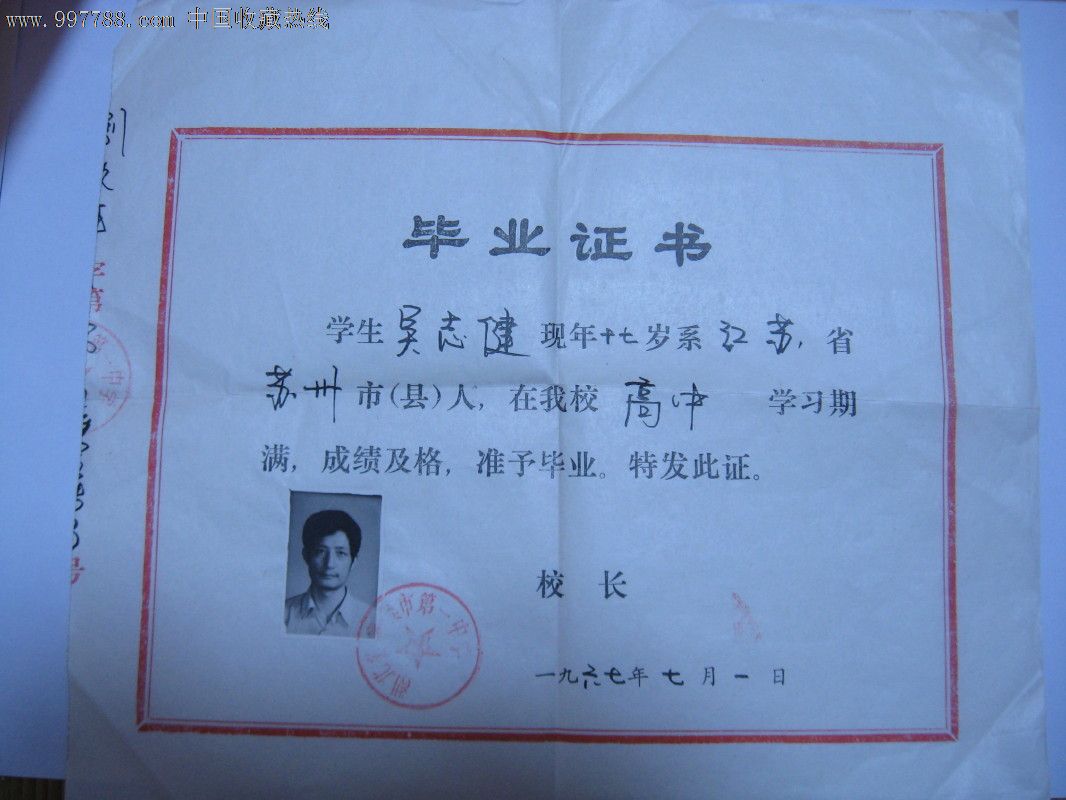 www.997788.com 中国收藏热线
毕业证书
学生吴志健现年十七岁系江苏省
苏州市(县)人,在我校高中学习期
满,成绩及格,准予毕业。特发此证。
校长
一九六七年七月一日
市第一中学
字第
号